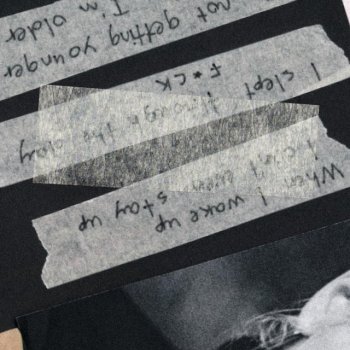 When I wake up
I can't even stay up
I slept through the day
F*CK
not getting younger
I'm older